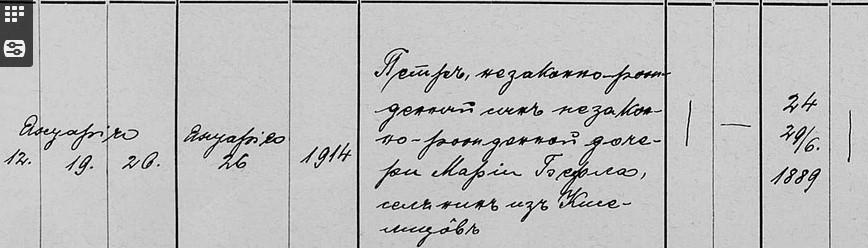 Януарію
12. 19. 26.
Януарію
26
1914
Петръ, незаконно-рож-
денный сынъ незакон-
но-рожденной доче-
ри Маріи
селянинъ изъ Кисе-
лицôвъ
24
29/6.
1889